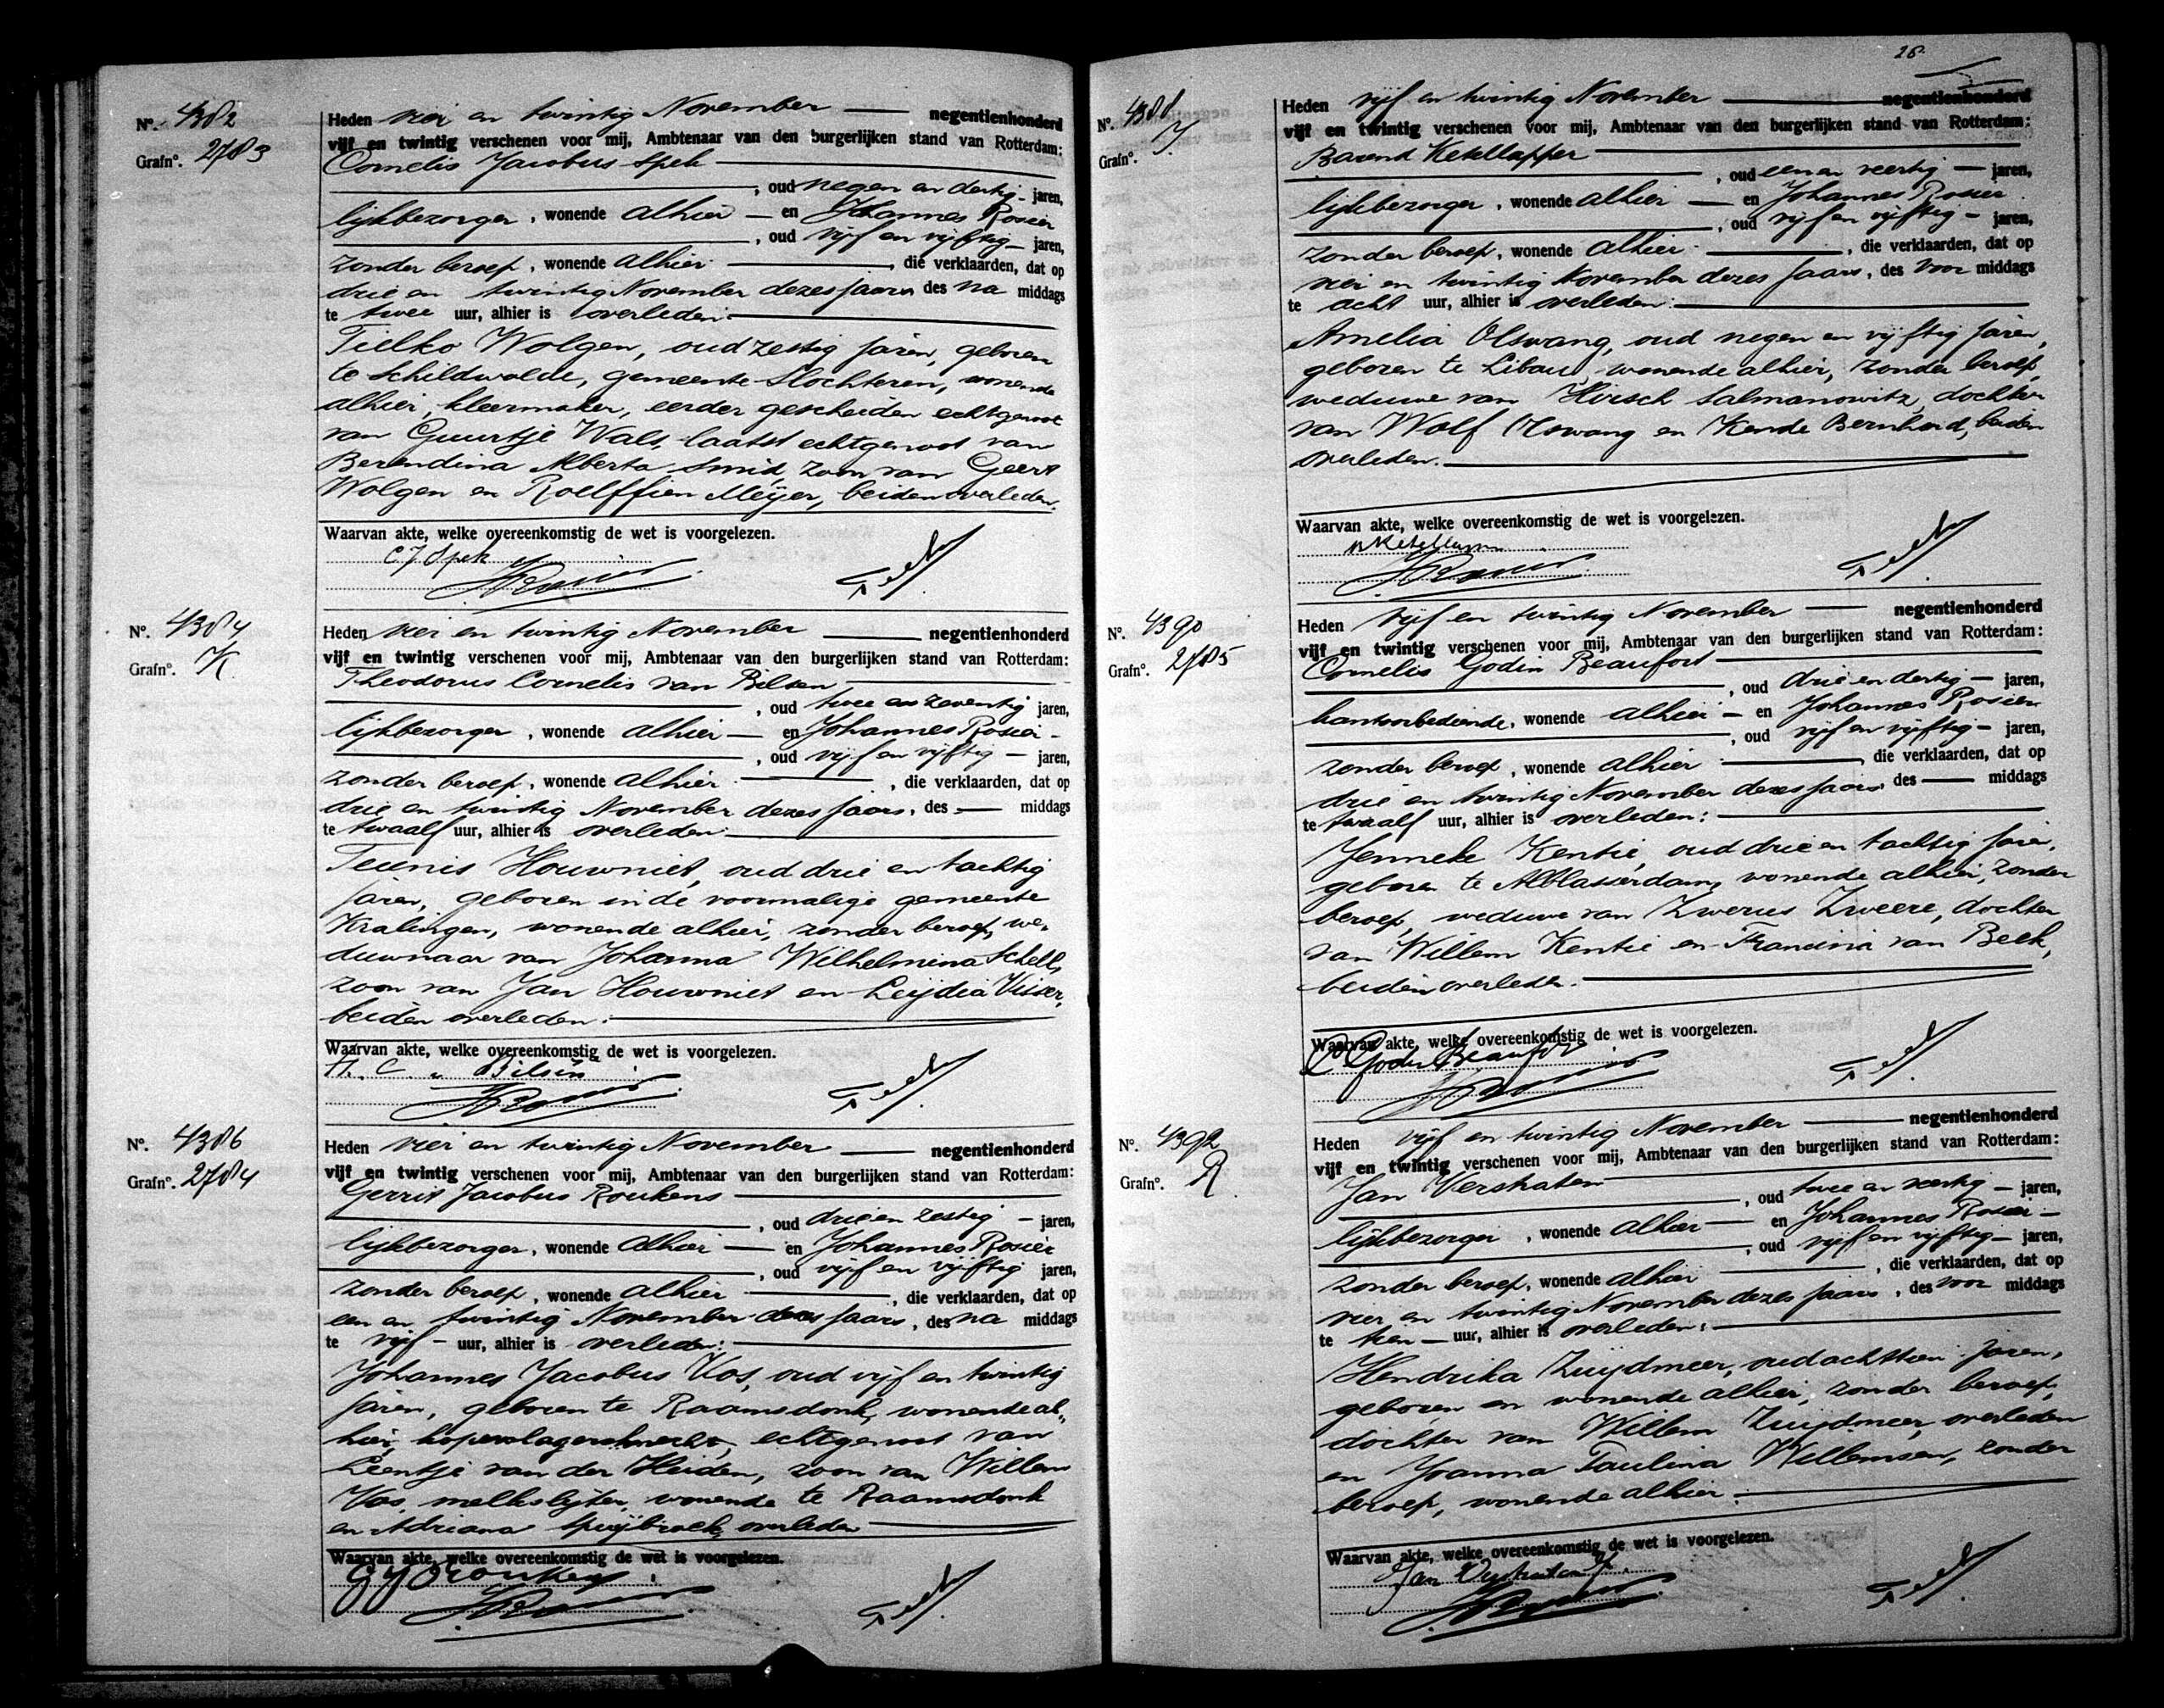 Nº. 4382
Grafnº. 2783
Heden vier en twintig November — negentienhonderd
vijf en twintig verschenen voor mij, Ambtenaar van den burgerlijken stand van Rotterdam:
Cornelis Jacobus Spek
, oud negen en dertig - jaren,
lijkbezorger, wonende alhier — en Johannes Rosier
, oud vijf en vijftig - jaren,
zonder beroep, wonende alhier — , die verklaarden, dat op
drie en twintig November dezes jaars des na middags
te twee uur, alhier is overleden:
Tielko Wolgen, oud zestig jaren, geboren
te Schildwolde, gemeente Slochteren, wonende
alhier, kleermaker, eerder gescheiden echtgenoot
van Guurtje Wals, laatst echtgenoot van
Berendina Alberta Smid, zoon van Geert
Wolgen en Roelffien Meijer, beiden overleden.
Waarvan akte, welke overeenkomstig de wet is voorgelezen.
C J Spek
JRosier
Nº. 4384
Grafnº. K
Heden vier en twintig November — negentienhonderd
vijf en twintig verschenen voor mij, Ambtenaar van den burgerlijken stand van Rotterdam:
Theodorus Cornelis van Bilsen
, oud twee en zeventig jaren,
lijkbezorger, wonende alhier — en Johannes Rosier -
, oud vijf en vijftig — jaren,
zonder beroep, wonende alhier — , die verklaarden, dat op
drie en twintig November dezes jaars, des — middags
te twaalf uur, alhier is overleden:
Teunis Houwniet, oud drie en tachtig
jaren, geboren in de voormalige gemeente
Kralingen, wonende alhier, zonder beroep, we-
duwnaar van Johanna Wilhelmina Schell,
zoon van Jan Houwniet en Leijdia Visser,
beiden overleden.
Waarvan akte, welke overeenkomstig de wet is voorgelezen.
Th. C. v Bilsen
JRosier
Nº. 4386
Grafnº. 2784
Heden vier en twintig November — negentienhonderd
vijf en twintig verschenen voor mij, Ambtenaar van den burgerlijken stand van Rotterdam:
Gerrit Jacobus Roukens
, oud drie en zestig - jaren,
lijkbezorger, wonende alhier — en Johannes Rosier
, oud vijf en vijftig jaren,
zonder beroep, wonende alhier — , die verklaarden, dat op
een en twintig November dezes jaars, des na middags
te vijf - uur, alhier is overleden:
Johannes Jacobus Vos, oud vijf en twintig
jaren, geboren te Raamsdonk, wonende al-
hier, koperslagersknecht, echtgenoot van
Leentje van der Heiden, zoon van Willem
Vos, melkslijter, wonende te Raamsdonk
en Adriana Spuijbroek, overleden
Waarvan akte, welke overeenkomstig de wet is voorgelezen.
G J Roukens
JRosier
Nº. 4388
Grafnº. J
28.
Heden vijf en twintig November — negentienhonderd
vijf en twintig verschenen voor mij, Ambtenaar van den burgerlijken stand van Rotterdam:
Barend Ketellapper
, oud een en veertig — jaren,
lijkbezorger, wonende alhier — en Johannes Rosier
, oud vijf en vijftig - jaren,
zonder beroep, wonende alhier — , die verklaarden, dat op
vier en twintig November dezes jaars, des voor middags
te acht uur, alhier is overleden:
Amelia Olswang, oud negen en vijftig jaren,
geboren te Libau, wonende alhier, zonder beroep,
weduwe van Hirsch Salmanowitz, dochter
van Wolf Olswang en Kende Bernhard, beiden
overleden.
Waarvan akte, welke overeenkomstig de wet is voorgelezen.
BKetellapper
JRosier
Nº. 4390
Grafnº. 2785
Heden vijf en twintig November — negentienhonderd
vijf en twintig verschenen voor mij, Ambtenaar van den burgerlijken stand van Rotterdam:
Cornelis Godin Beaufort
, oud drie en dertig — jaren,
kantoorbediende, wonende alhier — en Johannes Rosier
, oud vijf en vijftig - jaren,
zonder beroep, wonende alhier — , die verklaarden, dat op
drie en twintig November dezes jaars, des — middags
te twaalf uur, alhier is overleden:
Jenneke Kentie, oud drie en tachtig jaren,
geboren te Alblasserdam, wonende alhier, zonder
beroep, weduwe van Zwerus Zweere, dochter
van Willem Kentie en Francina van Beek,
beiden overleden.
Waarvan akte, welke overeenkomstig de wet is voorgelezen.
C Godin Beaufort
JRosier
Nº. 4392
Grafnº. R
Heden vijf en twintig November — negentienhonderd
vijf en twintig verschenen voor mij, Ambtenaar van den burgerlijken stand van Rotterdam:
Jan Verstraten
, oud twee en veertig — jaren,
lijkbezorger, wonende alhier — en Johannes Rosier —
, oud vijf en vijftig — jaren,
zonder beroep, wonende alhier — , die verklaarden, dat op
vier en twintig November dezes jaars, des voor middags
te tien — uur, alhier is overleden:
Hendrika Zuijdmeer, oud achttien jaren,
geboren en wonende alhier, zonder beroep,
dochter van Willem Zuijdmeer, overleden
en Joanna Paulina Willemsen, zonder
beroep, wonende alhier.
Waarvan akte, welke overeenkomstig de wet is voorgelezen.
Jan Verstraten
JRosier